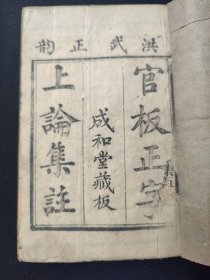 洪武正韵
官板正字
成和堂藏板
上論集註